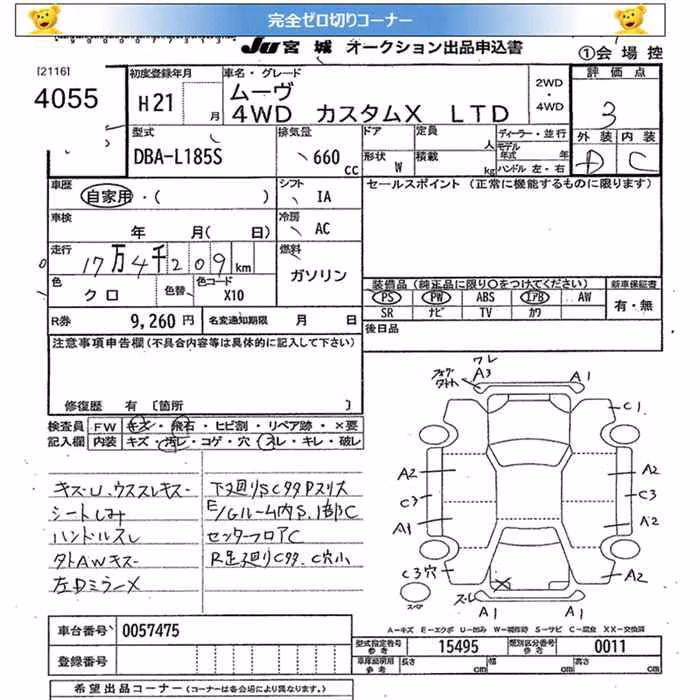 完全ゼロ切りコーナー
JU 宮城 オークション出品申込書
①会場控
[2116]
4055
初度登録年月
H21 月
車名・グレード
ムーヴ
4WD カスタムX LTD
2WD
・
4WD
評価点
3
外装 内装
D C
型式
DBA-L185S
排気量
660 cc
ドア
定員
人
形状 W
積載
kg
ディーラー・並行
モデル年式 年
ハンドル 左・右
車歴
自家用・( )
シフト
IA
セールスポイント (正常に機能するものに限ります)
車検
年 月( 日)
冷房
AC
走行
17万4千209km
燃料
ガソリン
色
クロ
色替
色コード
X10
装備品 (純正品に限り○をつけてください)
PS PW ABS エアB AW
SR ナビ TV カワ
新車保証書
有・無
R券
9,260円
名変通知期限 月 日
後日品
注意事項申告欄 (不具合内容等は具体的に記入して下さい)
修復歴 有 [箇所 ]
検査員記入欄
FW キズ・飛石・ヒビ割・リペア跡・×要
内装 キズ・汚レ・コゲ・穴・スレ・キレ・破レ
キズU、ウススレキズ
シートしみ
ハンドルスレ
タトAWキズ
左Dミラーx
下廻りSCタタPスリス
E/Gルーム内S.1部C
センターフロアC
R足廻りCタタ、C穴小
ワレ
A3
A1
C1
A2
C3
A1
A2
C3
A2
C3穴
A2
スペア
スレ
A1
A1
A-キズ E-エクボ U-凹み W-補修跡 S-サビ C-腐食 XX-交換済
車台番号 0057475
登録番号
型式指定番号 参考 15495
類別区分番号 参考 0011
車庫証明用 参考 長さ cm 幅 cm 高さ cm
希望出品コーナー (コーナーは各会場により異なります。)